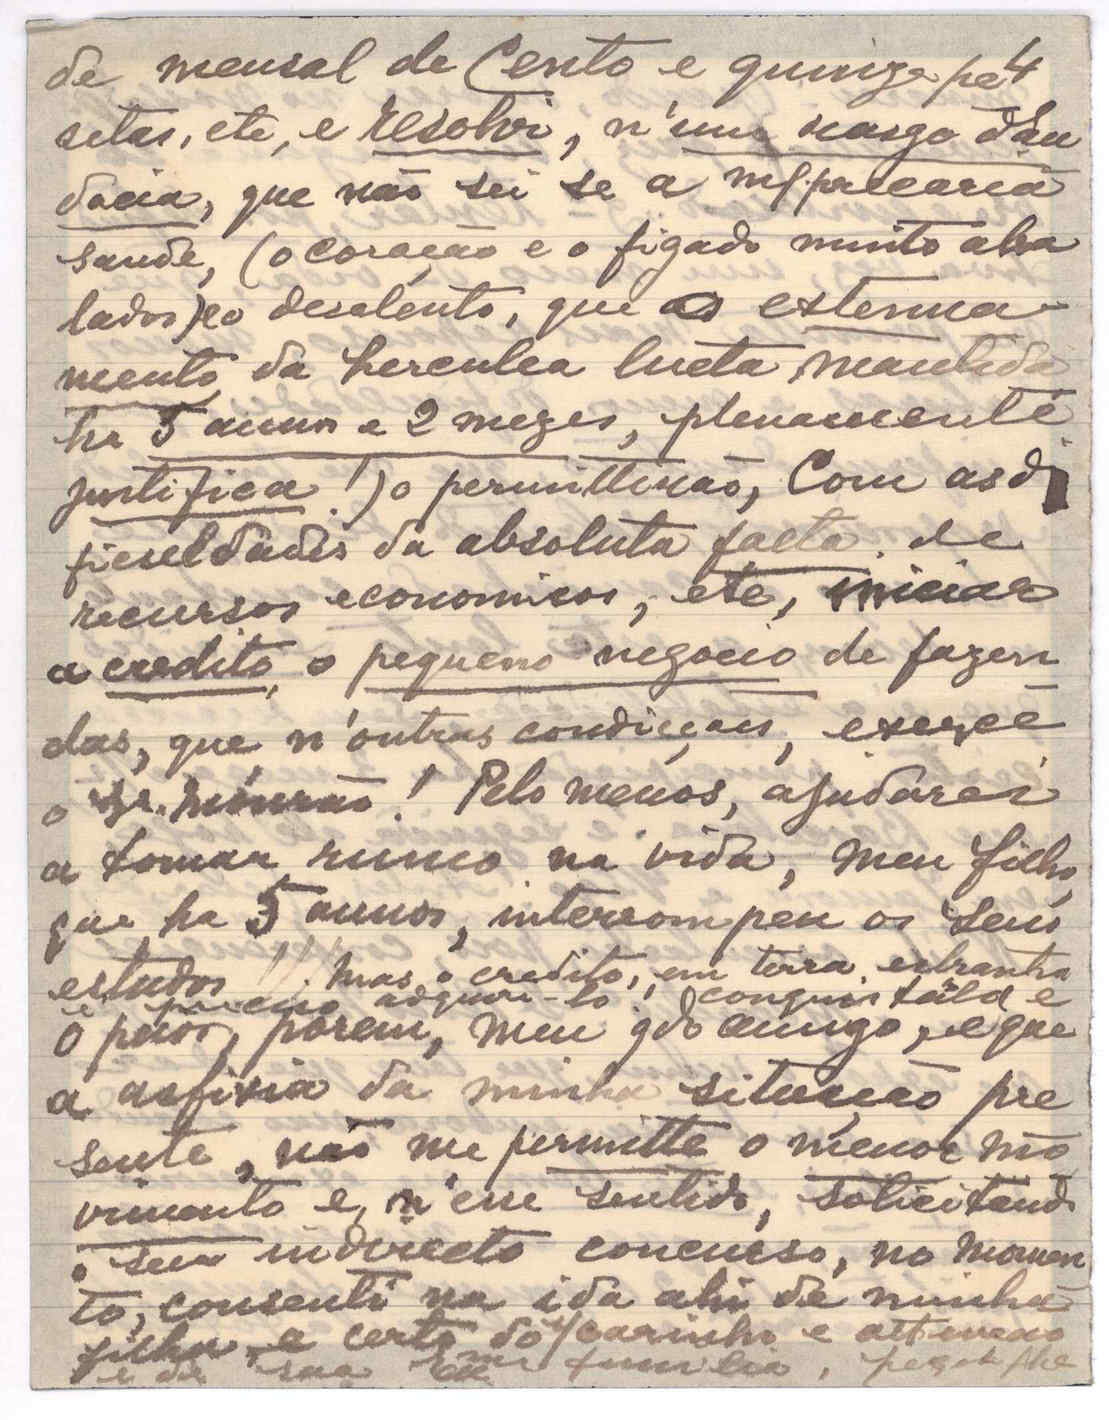 4
de mensal de Cento e quinze pe
setas, etc, e resolvi, n'um rasgo d'au
dacia, que não sei se a m/ precaria
saude, (o coração e o figado muito aba
lados) e o desalento, que o extenua-
mento da herculea lucta, mantida
ha 5 annos e 2 mezes, plenamente
justifica!) o permittirão, Com as di
ficuldades da absoluta falta de
recursos economicos, etc, iniciar
a credito, o pequeno negocio de fazen
das, que, n'outras condiçoes, exerce
o Sr. Mourão! Pelo menos, ajudarei
a tomar rumo na vida, meu filho,
que ha 5 annos, interrompeu os seus
estudos!!! Mas o credito, em terra estranha
é preciso adquiri-lo, conquistal-o e
o peor, porem, meu qdo amigo, é que
a asfixia da minha situação pre
sente, não me permitte o menor mo
vimento e, n'esse sentido, solicitando
o seu indirecto concurso, no momen
to, consenti na ida ahi de minha
filha, e certo do carinho e attenção
e de sua Exma familia,